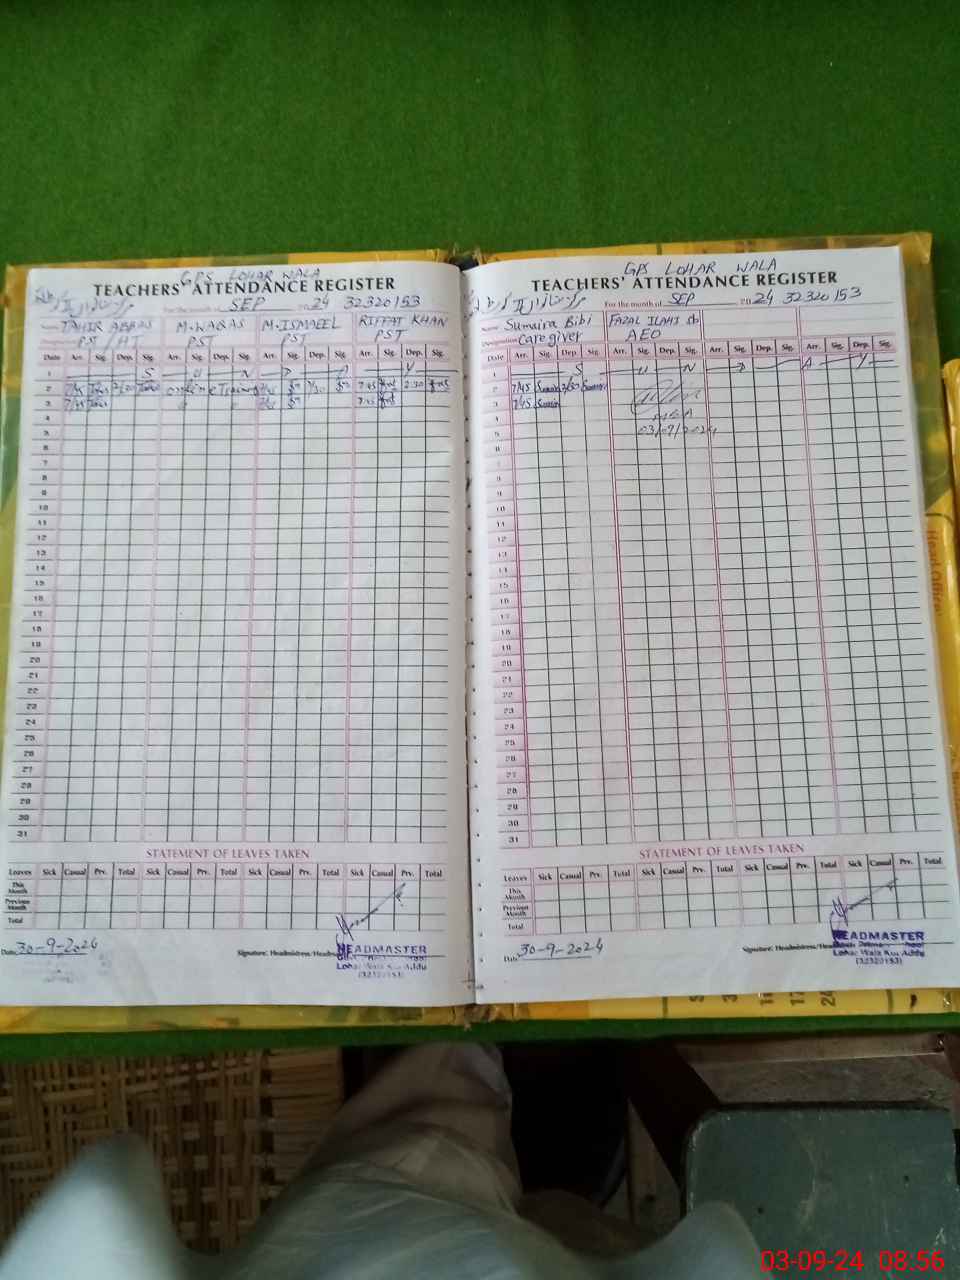 GPS LOHAR WALA
TEACHERS' ATTENDANCE REGISTER
For the month of SEP 2024 32320153
Name TAHIR ABBAS M.WAQAS M.ISMAEEL RIFFAT KHAN
Designation PST/HT PST PST PST
Date Arr. Sig. Dep. Sig. Arr. Sig. Dep. Sig. Arr. Sig. Dep. Sig. Arr. Sig. Dep. Sig.
1 S U N D A Y
2 7/45 Tahir 2/30 Tahir online Training 7/45 1/30 7:45 2:30
3 7/45 Tahir 7:45
4
5
6
7
8
9
10
11
12
13
14
15
16
17
18
19
20
21
22
23
24
25
26
27
28
29
30
31
STATEMENT OF LEAVES TAKEN
Leaves Sick Casual Prv. Total Sick Casual Prv. Total Sick Casual Prv. Total Sick Casual Prv. Total
This Month
Previous Month
Total
Date 30-9-2024 Signature: Headmistress/Headmaster
HEADMASTER
Lohar Wala Kot Addu
(32320153)
GPS LOHAR WALA
TEACHERS' ATTENDANCE REGISTER
For the month of SEP 2024 32320153
Name Sumaira Bibi FAZAL ILAHI Sb
Designation Caregiver AEO
Date Arr. Sig. Dep. Sig. Arr. Sig. Dep. Sig. Arr. Sig. Dep. Sig. Arr. Sig. Dep. Sig.
1 S U N D A Y
2 7/45 Sumaira 2/30 Sumaira
3 7:45 Sumaira
4
5 03/09/2024
6
7
8
9
10
11
12
13
14
15
16
17
18
19
20
21
22
23
24
25
26
27
28
29
30
31
STATEMENT OF LEAVES TAKEN
Leaves Sick Casual Prv. Total Sick Casual Prv. Total Sick Casual Prv. Total Sick Casual Prv. Total
This Month
Previous Month
Total
Date 30-9-2024 Signature: Headmistress/Headmaster
HEADMASTER
Lohar Wala Kot Addu
(32320153)
Head Office
03-09-24 08:56